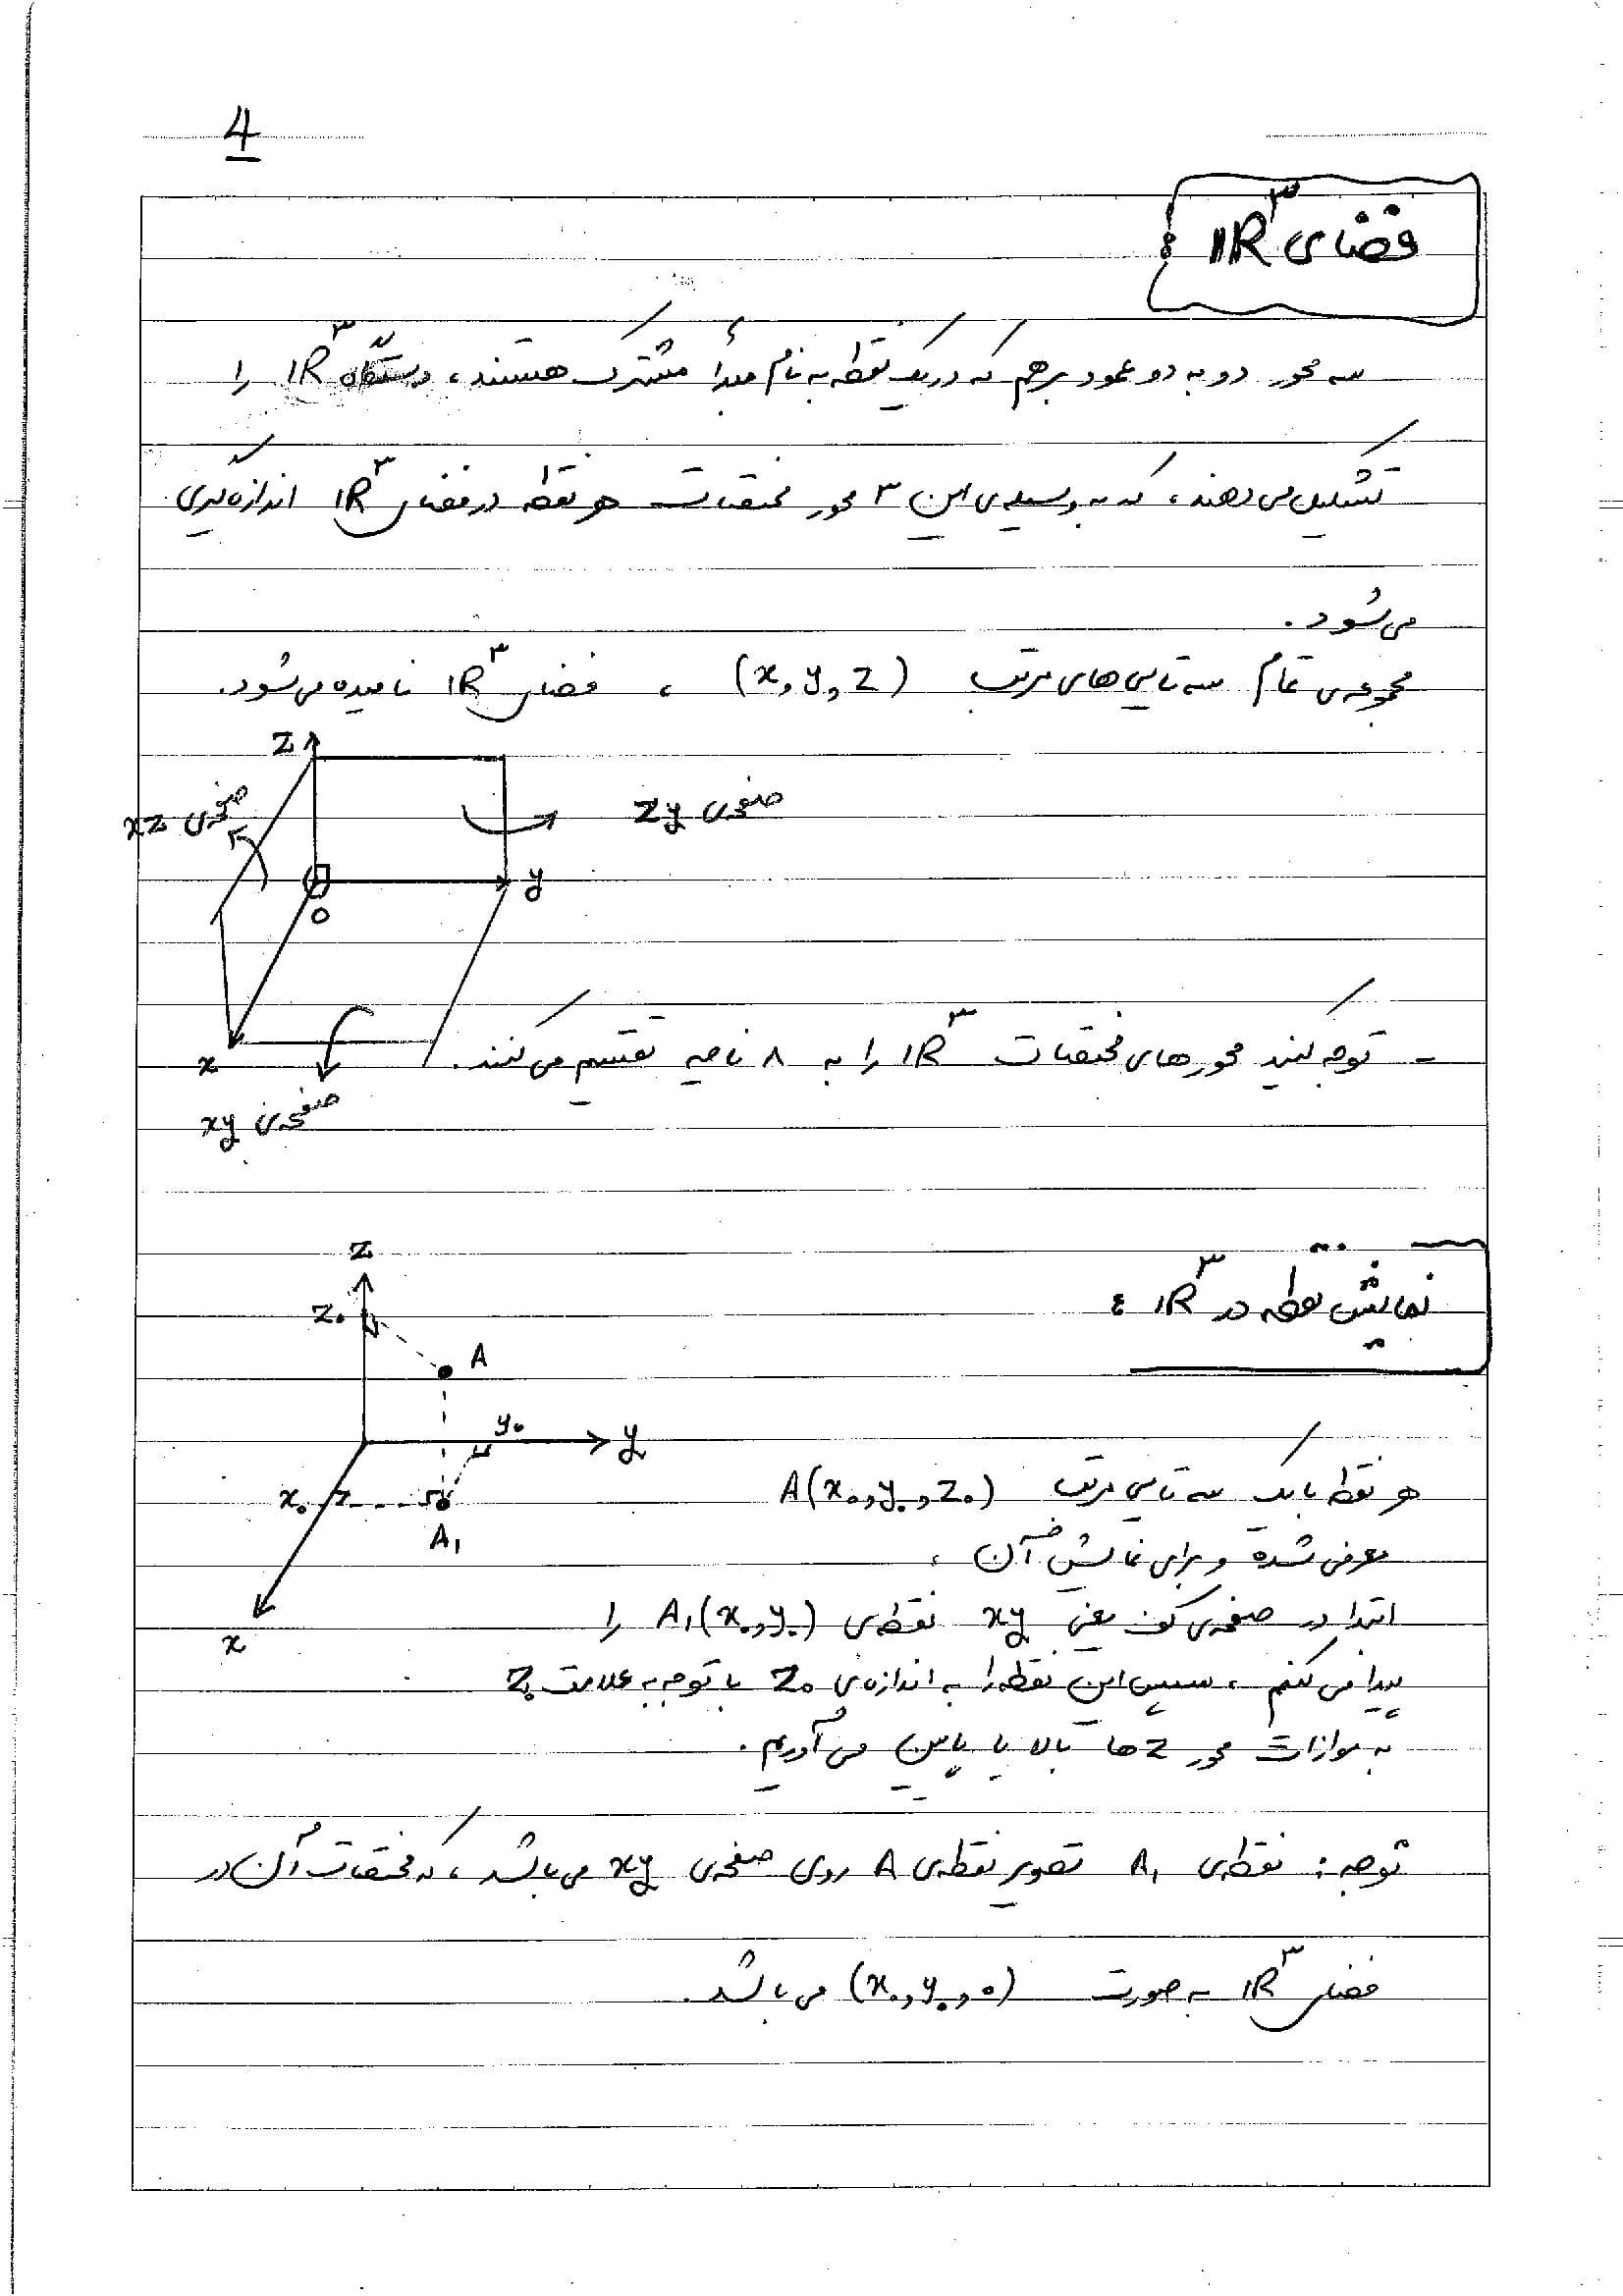 4
فضای IR³ :
سه محور دو به دو عمود برهم که در یک نقطه به نام مبدأ مشترک هستند، دستگاه IR³ را
تشکیل می دهند، که به وسیله ی این ۳ محور مختصات هر نقطه در فضای IR³ اندازه گیری
می شود.
مجموعه ی تمام سه تایی های مرتب (x, y, z) ، فضای IR³ نامیده می شود.
z
صفحه ی xz
صفحه ی zy
y
o
x
صفحه ی xy
- توجه کنید محورهای مختصات IR³ را به ۸ ناحیه تقسیم می کنند.
نمایش نقطه در IR³ :
z
z₀
A
y₀
y
x₀
A₁
x
هر نقطه با یک سه تایی مرتب A(x₀, y₀, z₀)
معرفی شده و برای نمایش آن ،
ابتدا در صفحه ی کف یعنی xy نقطه ی A₁(x₀, y₀) را
پیدا می کنیم ، سپس این نقطه را به اندازه ی z₀ با توجه به علامت z₀
به موازات محور z ها بالا یا پایین می آوریم.
توجه : نقطه ی A₁ تصویر نقطه ی A روی صفحه ی xy می باشد ، که مختصات آن در
فضای IR³ به صورت (x₀, y₀, 0) می باشد.